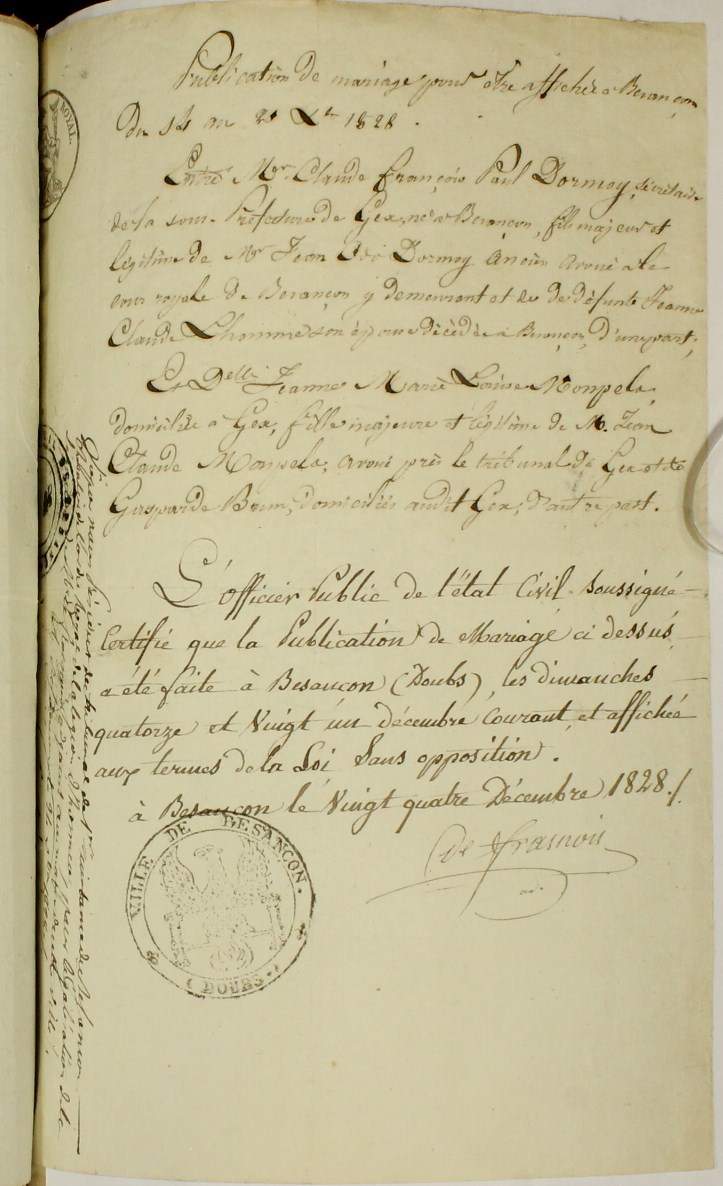 Publication de mariage pour être affichée à Besançon
du 14 au 21 Xbre 1828.
Entre Mr. Claude François Paul Dormoy, sécrétaire
de la sous-Préfecture de Gex, né à Besançon, fils majeur et
légitime de Mr Jean Dormoy ancien avoué à la
cour royale de Besançon y demeurant et de défunte Jeanne
Claude Lhomme son épouse décédée à Besançon, d'une part;
Et Delle Jeanne Marie Louise Monpela,
domiciliée à Gex, fille majeure et légitime de M. Jean
Claude Monpela, avoué près le tribunal de Gex et de
Gasparde Brun, domiciliés audit Gex, d'autre part.
L'officier Public de l'état Civil Soussigné
Certifié que la Publication de Mariage ci dessus
a été faite à Besançon (Doubs), les dimanches
quatorze et Vingt un décembre Courant, et affichée
aux termes de la Loi Sans opposition.
à Besançon le Vingt quatre Décembre 1828./.
VILLE DE BESANÇON.
(DOUBS)
ROYAL